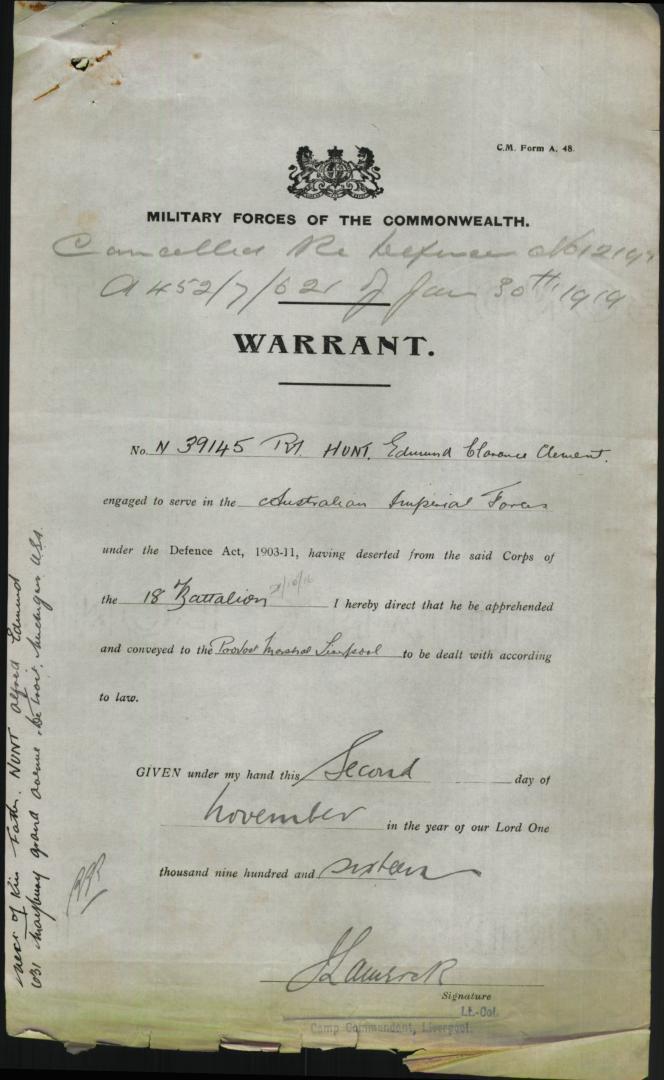 C.M. Form A. 48.
MILITARY FORCES OF THE COMMONWEALTH.
Cancelled Re Defence No 12197
A 452/7/621 of Jan 30th 1919
WARRANT.
No. N 39145 Pt. HUNT. Edmund Clarence Clement.
engaged to serve in the Australian Imperial Forces
under the Defence Act, 1903-11, having deserted from the said Corps of
the 18 Battalion 21/10/16 I hereby direct that he be apprehended
and conveyed to the Provost Marshal Liverpool to be dealt with according
to law.
GIVEN under my hand this Second day of
November in the year of our Lord One
thousand nine hundred and sixteen
Signature
Lt.-Col.
Camp Commandant, Liverpool.
Next of Kin Father. HUNT Alfred Edmund
1031 Maybury Grand Avenue, Detroit. Michigan USA.